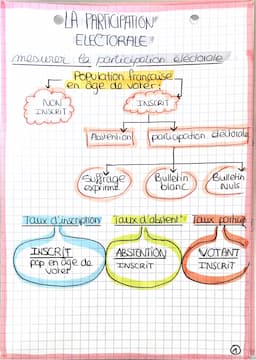 LA PARTICIPATION
ELECTORALE
mesurer la participation electorale
Population française
en âge de voter:
NON INSCRIT
INSCRIT
Abstention
participation electorale
Suffrage exprimé
Bulletin blanc
Bulletin Nuls
Taux d'inscription
Taux d'abstent°
Taux particip
INSCRIT
pop en âge de voter
ABSTENTION
INSCRIT
VOTANT
INSCRIT
1